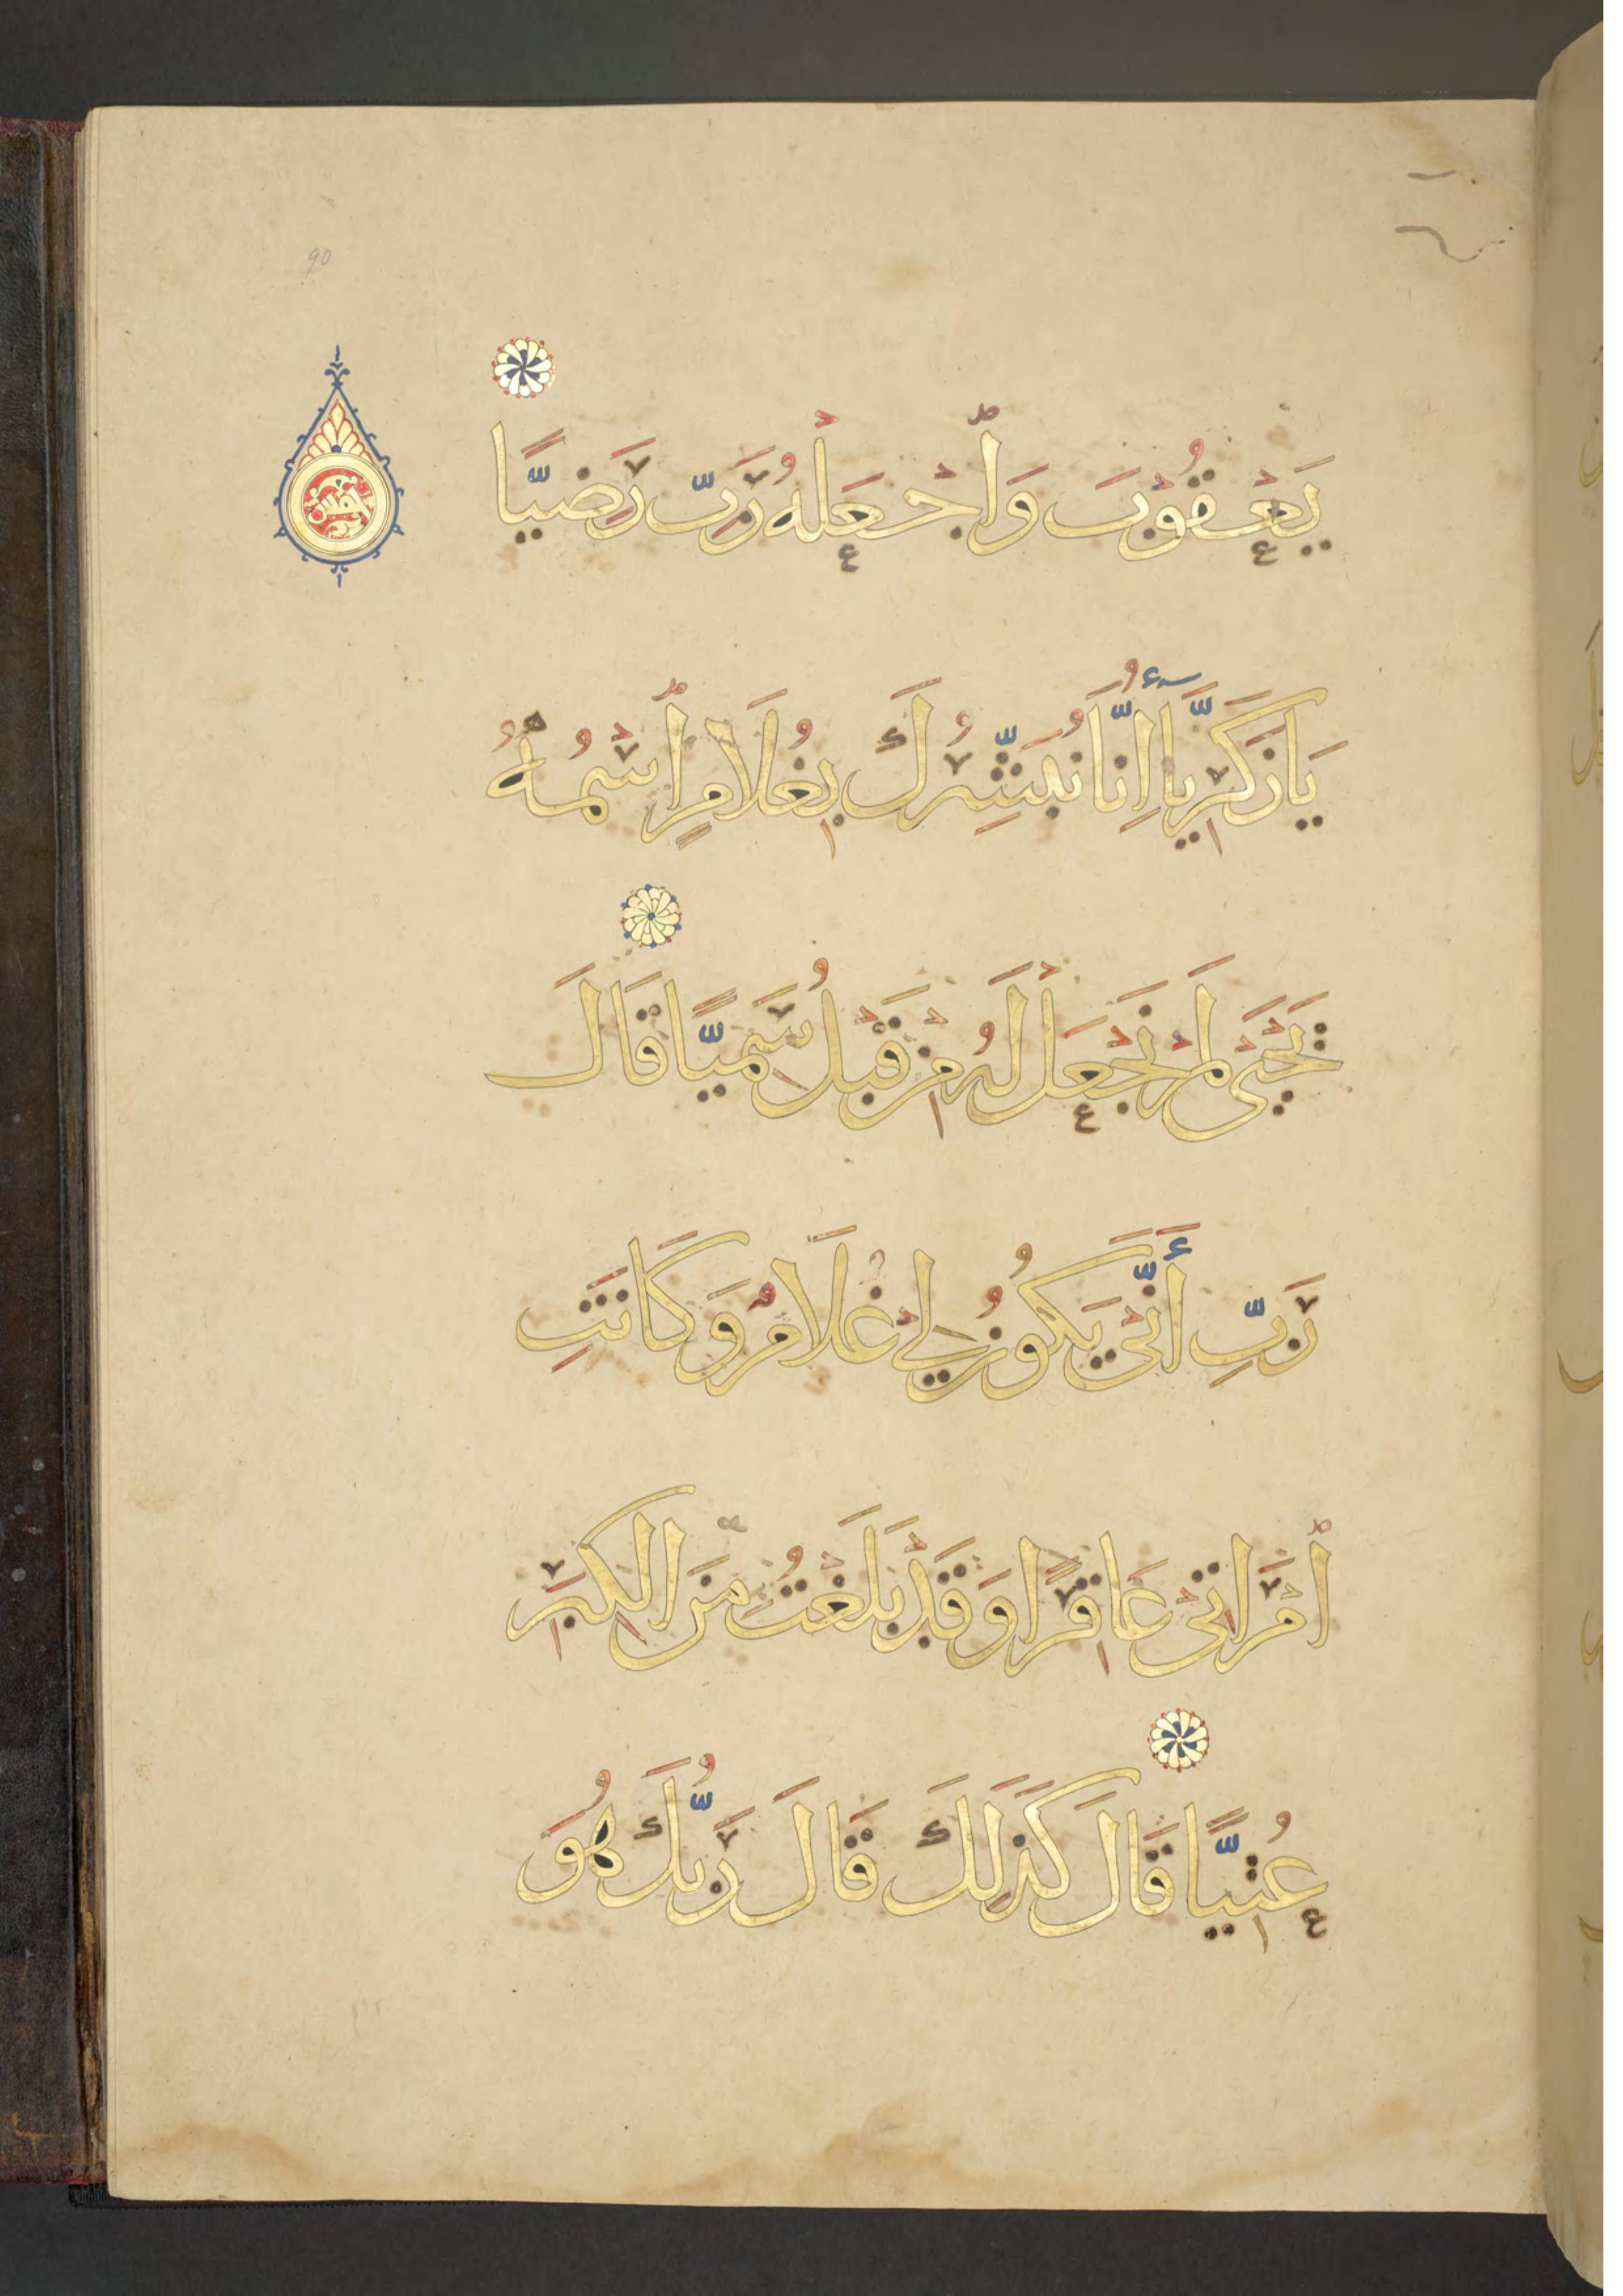 90
يَعْقُوْبَ وَاجْعَلْهُ رَبِّ رَضِيًّا
يَازَكَرِيَّاۤ اِنَّا نُبَشِّرُكَ بِغُلَامٍ اسْمُهُ
يَحْيَى لَمْ نَجْعَلْ لَهُ مِنْ قَبْلُ سَمِيًّا قَالَ
رَبِّ أَنَّى يَكُوْنُ لِيْ غُلَامٌ وَكَانَتِ
امْرَاتِيْ عَاقِرًا وَقَدْ بَلَغْتُ مِنَ الْكِبَرِ
عُتِيًّا قَالَ كَذَلِكَ قَالَ رَبُّكَ هُوَ